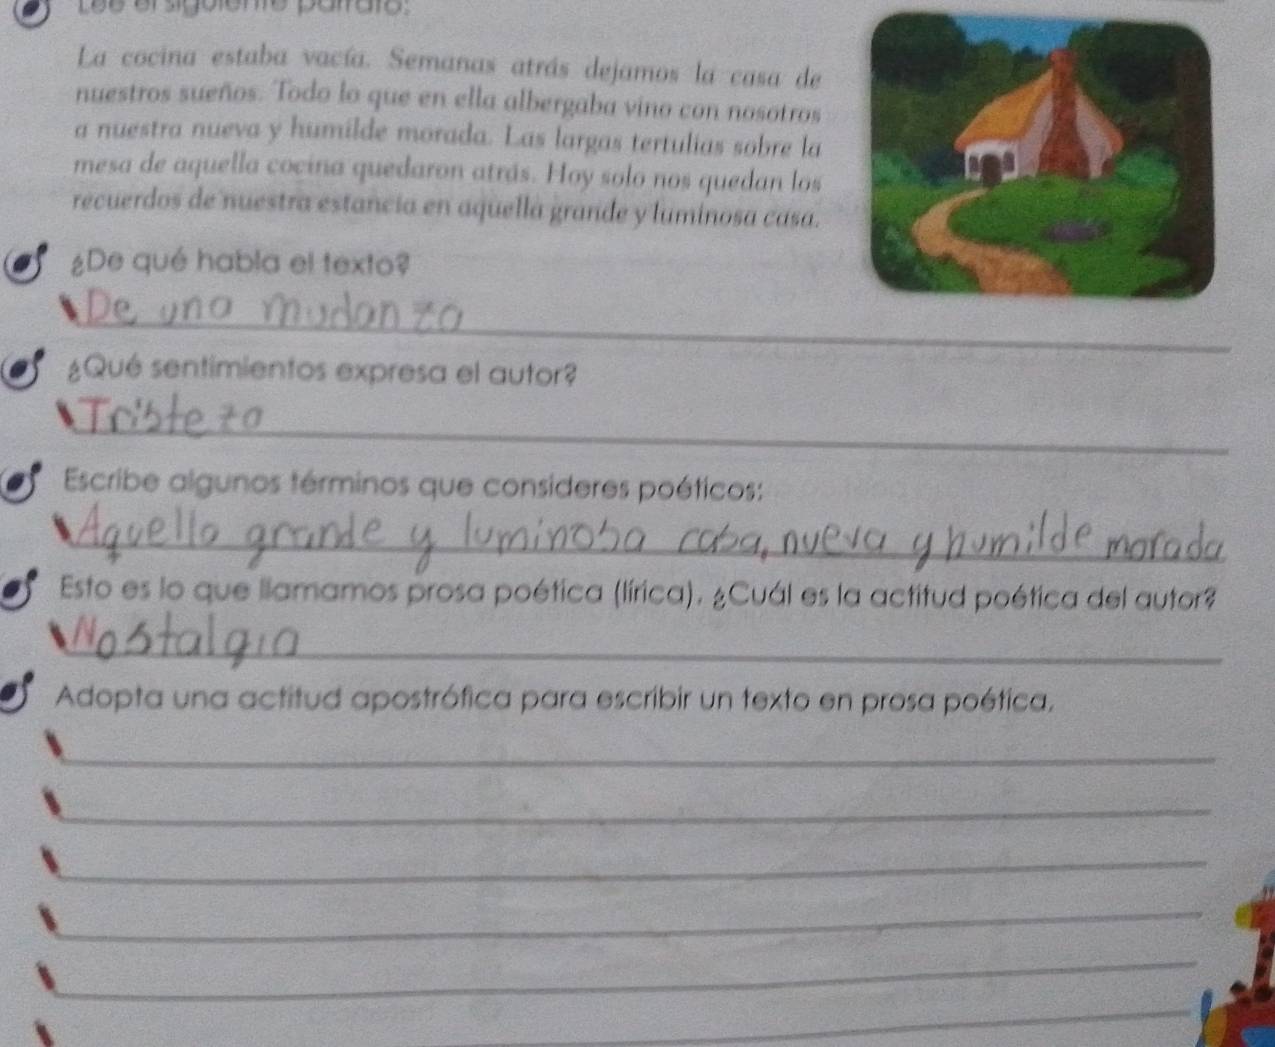 Lee el siguiente párrafo:
La cocina estaba vacía. Semanas atrás dejamos la casa de
nuestros sueños. Todo lo que en ella albergaba vino con nosotros
a nuestra nueva y humilde morada. Las largas tertulias sobre la
mesa de aquella cocina quedaron atrás. Hoy solo nos quedan los
recuerdos de nuestra estancia en aquella grande y luminosa casa.
¿De qué habla el texto?
De una mudanza
¿Qué sentimientos expresa el autor?
Tristeza
Escribe algunos términos que consideres poéticos:
Aquella grande y luminosa casa, nueva y humilde morada
Esto es lo que llamamos prosa poética (lírica). ¿Cuál es la actitud poética del autor?
Nostalgia
Adopta una actitud apostrófica para escribir un texto en prosa poética.